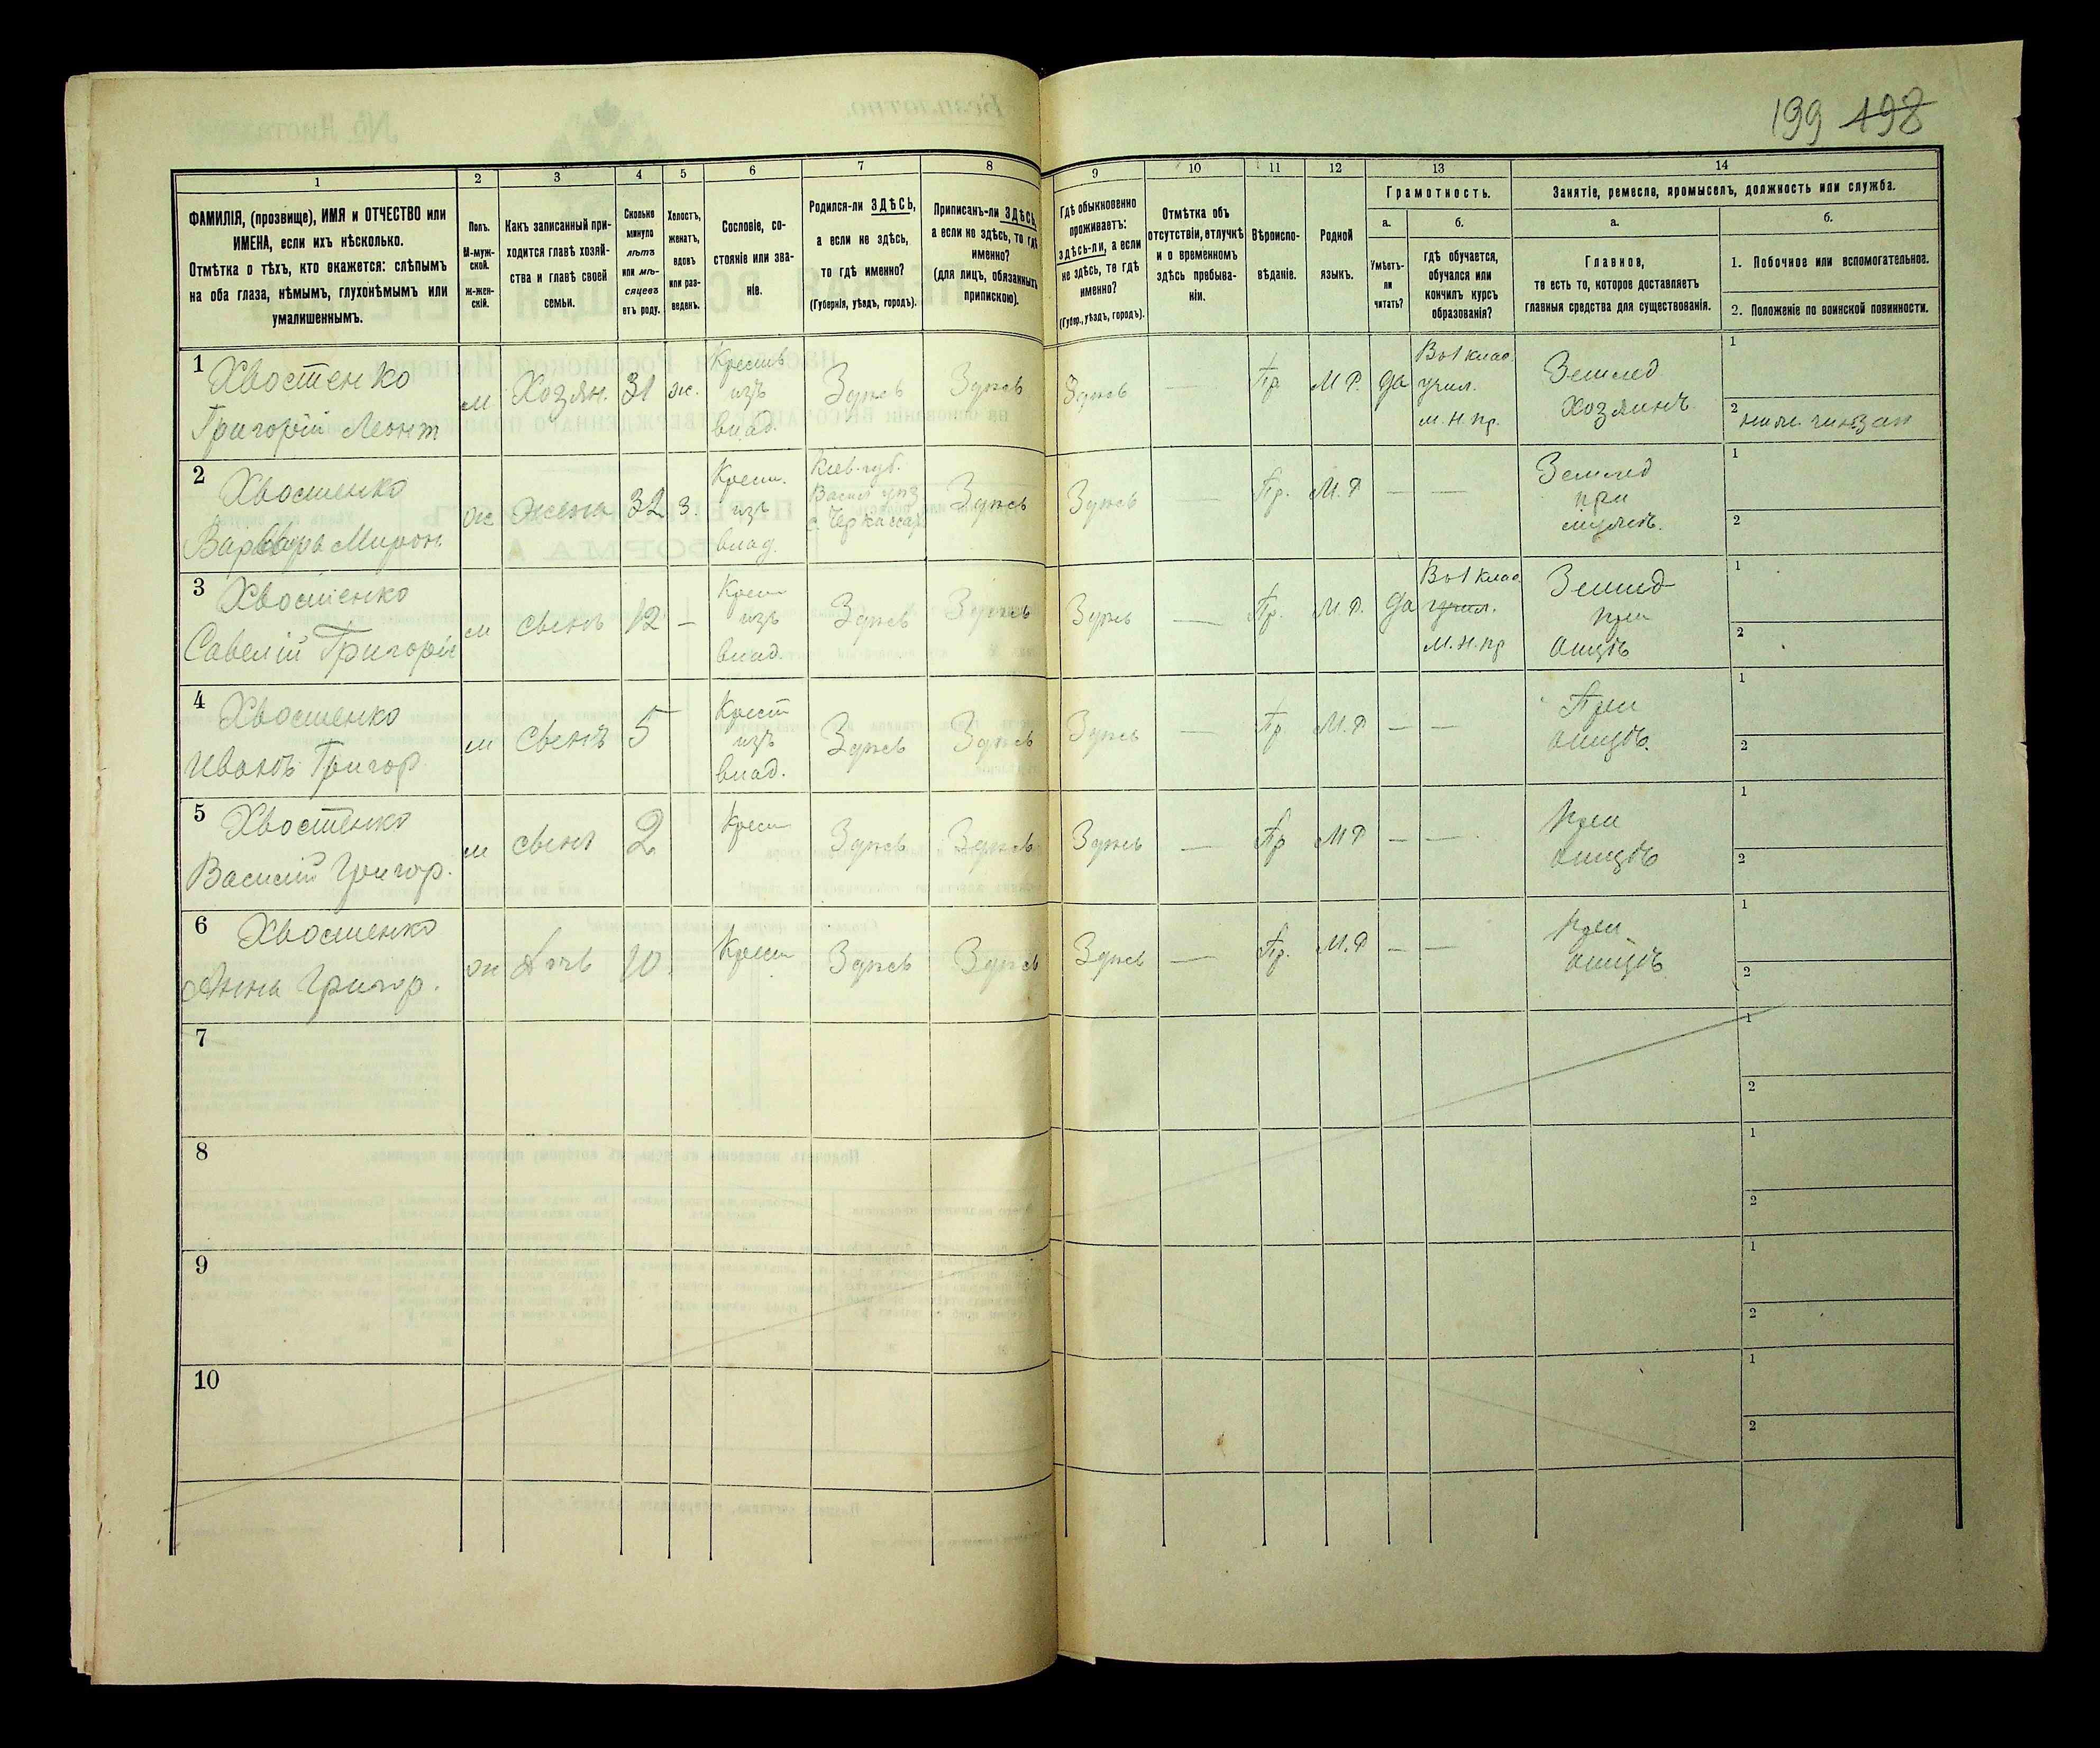 199 198
1
2
3
4
5
6
7
8
9
10
11
12
13
14
ФАМИЛІЯ, (прозвище), ИМЯ и ОТЧЕСТВО или
ИМЕНА, если ихъ нѣсколько.
Отмѣтка о тѣхъ, кто окажется: слѣпымъ
на оба глаза, нѣмымъ, глухонѣмымъ или
умалишеннымъ.
Полъ.
М-муж-
ской.
ж-жен-
скій.
Какъ записанный при-
ходится главѣ хозяй-
ства и главѣ своей
семьи.
Сколько
минуло
лѣтъ
или мѣ-
сяцевъ
отъ роду.
Холостъ,
женатъ,
вдовъ
или раз-
веденъ.
Сословіе, со-
стояніе или зва-
ніе.
Родился-ли ЗДѢСЬ,
а если не здѣсь,
то гдѣ именно?
(Губернія, уѣздъ, городъ).
Приписанъ-ли ЗДѢСЬ,
а если не здѣсь, то гдѣ
именно?
(для лицъ, обязанныхъ
припискою).
Гдѣ обыкновенно
проживаетъ:
здѣсь-ли, а если
не здѣсь, то гдѣ
именно?
(Губер., уѣздъ, городъ).
Отмѣтка объ
отсутствіи, отлучкѣ
и о временномъ
здѣсь пребыва-
ніи.
Вѣроиспо-
вѣданіе.
Родной
языкъ.
Грамотность.
а.
Умѣетъ-
ли
читать?
б.
гдѣ обучается,
обучался или
кончилъ курсъ
образованія?
Занятіе, ремесло, промыселъ, должность или служба.
а.
Главное,
то есть то, которое доставляетъ
главныя средства для существованія.
б.
1. Побочное или вспомогательное.
2. Положеніе по воинской повинности.
1
Хвостенко
Григорій Леонт
м
Хозян.
31
ж.
изъ
влад.
Здѣсь
Здѣсь
Здѣсь
—
Пр.
М Р.
да
Во 1 клас.
учил.
м. н. пр.
Землед
Хозяинъ
1
2
2
Хвостенко
Варвара Мирон.
ж
жена
32
з.
Крест.
изъ
влад.
Кіев. губ.
Васил. уѣз
с. Черкассах
Здѣсь
Здѣсь
—
Пр.
М. Р
—
—
Землед
при
мужѣ.
1
2
3
Хвостенко
Савелій Григорій
м
сынъ
12
—
Крест
изъ
влад.
Здѣсь
Здѣсь
Здѣсь
—
Пр.
М. Р.
да
Во 1 клас
учил.
м. н. пр
Землед
при
отцѣ
1
2
4
Хвостенко
Иванъ Григор
м
сынъ
5
Крест
изъ
влад.
Здѣсь
Здѣсь
Здѣсь
—
Пр.
М. Р
—
—
При
отцѣ.
1
2
5
Хвостенко
Василій Григор.
м
сынъ
2
Крест
Здѣсь
Здѣсь
Здѣсь
—
Пр
М Р
—
—
При
отцѣ
1
2
6
Хвостенко
Анна Григор.
ж
дочь
10.
Крест
Здѣсь
Здѣсь
Здѣсь
—
Пр.
М. Р
—
—
При
отцѣ
1
2
7
1
2
8
1
2
9
1
2
10
1
2